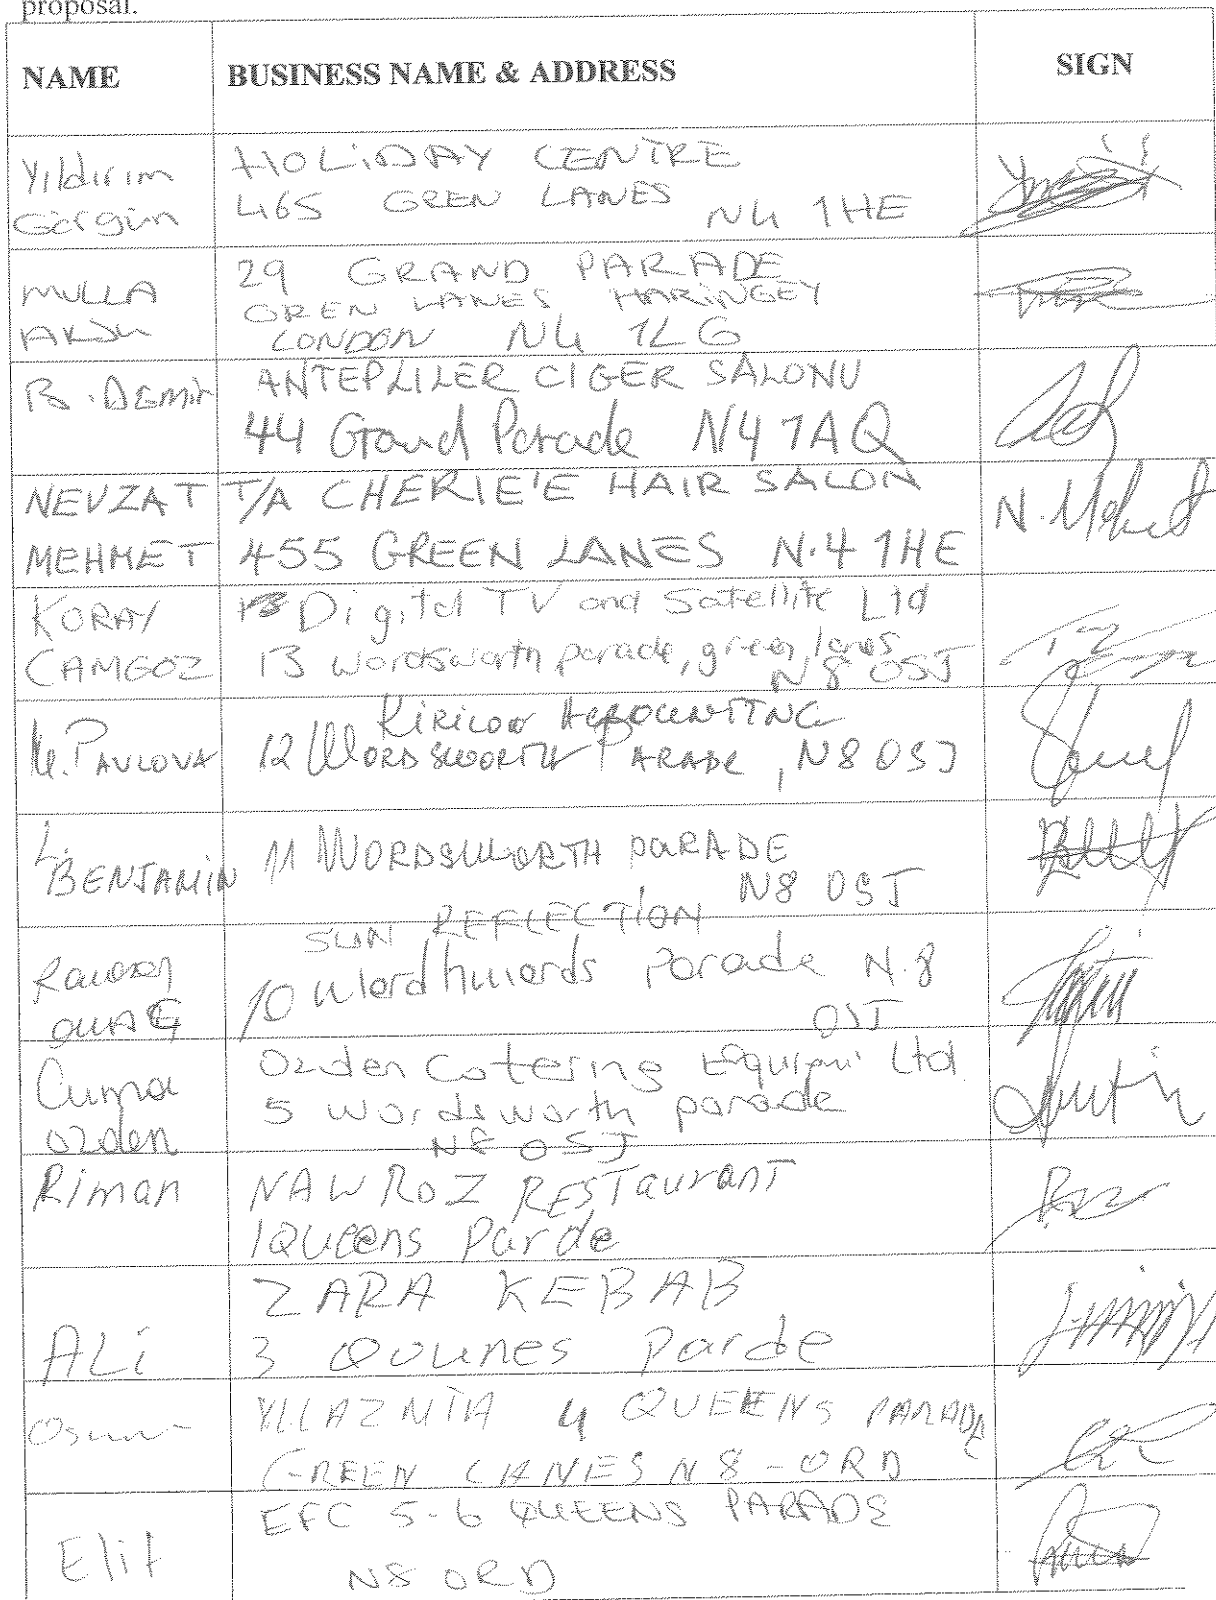 proposal.
NAME BUSINESS NAME & ADDRESS SIGN
Yıldırım HOLIDAY CENTRE
Görgün 465 GREN LANES N4 1HE
MULLA 29 GRAND PARADE
AKSU GREN LANES HARINGEY
LONDON N4 1LG
B. DEMIR ANTEPLILER CIGER SALONU
44 Grand Parade N4 1AQ
NEVZAT T/A CHERIE'E HAIR SALON
MEHMET 455 GREEN LANES N.4 1HE
N. Mehmet
KORAY Digital TV and Satellite Ltd
CAMGOZ 13 wordsworth parade, green lanes
N8 0SJ
M. PAVLOVA 12 WORDSWORTH PARADE, N8 0SJ
L. BENJAMIN 11 WORDSWORTH PARADE
N8 0SJ
SUN REFLECTION
10 Wordhwords Parade N.8
0SJ
Cuma Ozden Catering Equipm Ltd
Ozden 5 wordsworth parade
N8 0SJ
Riman NAWROZ RESTaurant
1 Queens Parde
ZARA KEBAB
ALi 3 Qounes Parde
YLLAZNIA 4 QUEENS PARADE
GREEN LANES N8-0RD
EFC 5-6 QUEENS PARADE
Elif N8 0RD